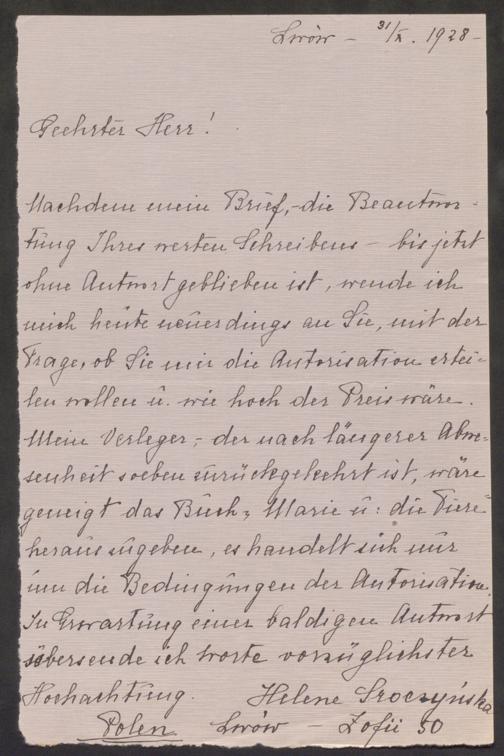 Lwów – 31/X. 1928 –
Geehrter Herr!
Nachdem mein Brief, – die Beantwor-
tung Ihres werten Schreibens – bis jetzt
ohne Antwort geblieben ist, wende ich
mich heute neuerdings an Sie, mit der
Frage, ob Sie mir die Autorisation ertei-
len wollen u. wie hoch der Preis wäre.
Mein Verleger, – der nach längerer Abwe-
senheit soeben zurückgekehrt ist, wäre
geneigt das Buch „Marie u: die Tiere
herauszugeben, es handelt sich nur
um die Bedingungen der Autorisation.
In Erwartung einer baldigen Antwort
übersende ich Worte vorzüglichster
Hochachtung. Helene Sroczyńska
Polen Lwów – Zofii 50